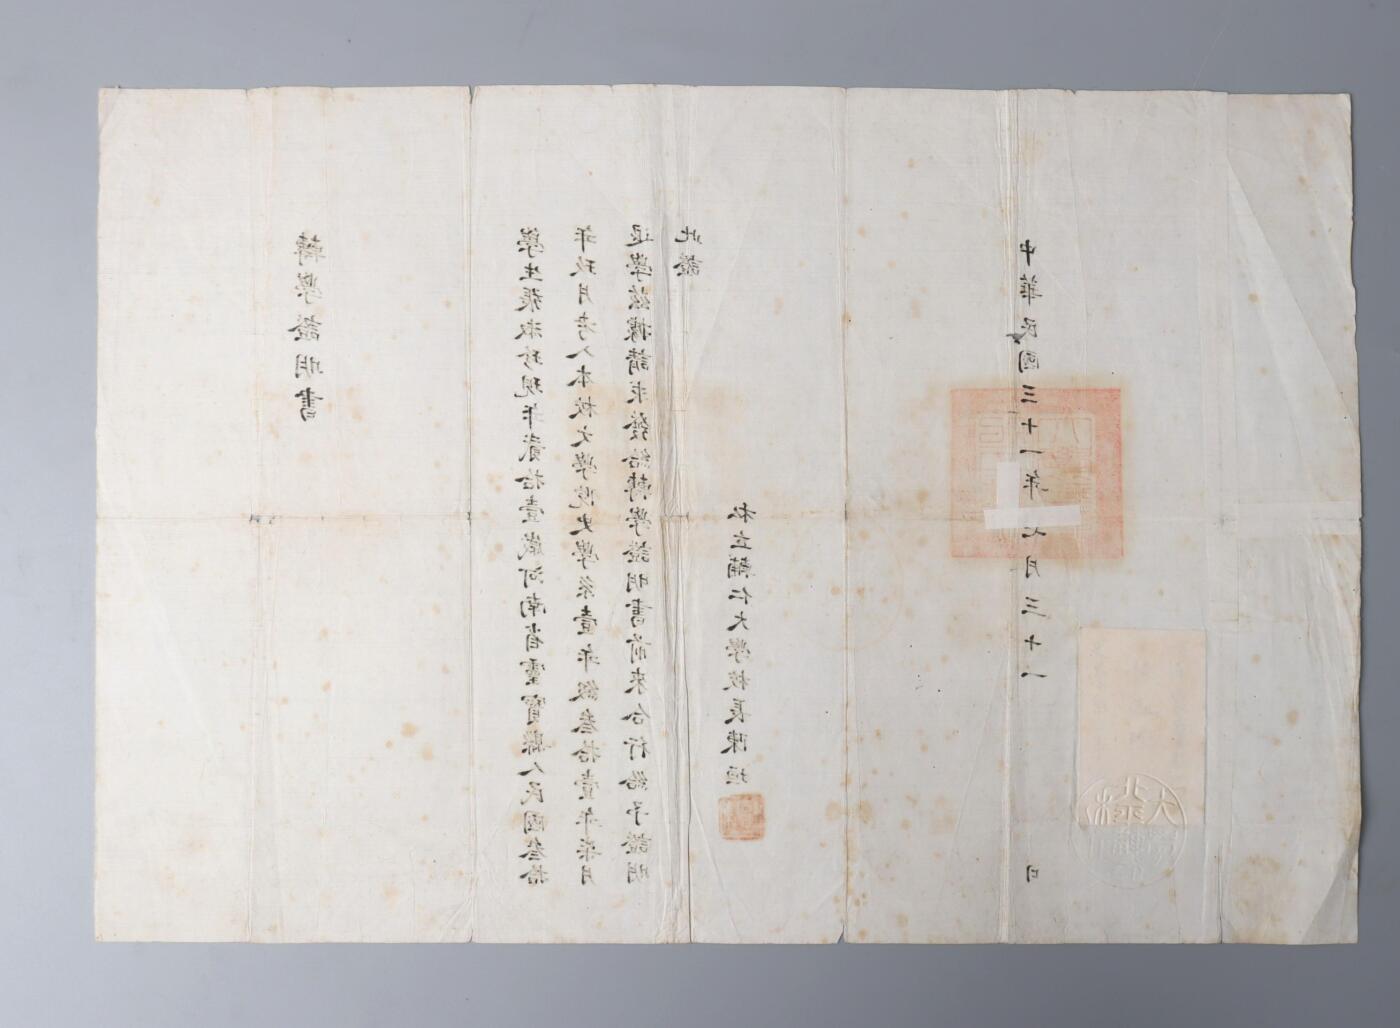 轉學證明書
學生張淑珍現年貳拾壹歲河南省靈寶縣人民國叁拾
年玖月考入本校文學院史學系壹年級叁拾壹年柒月
退學茲據請求發給轉學證明書前來合行給予證明
此證
私立輔仁大學校長陳垣
中華民國三十一年七月三十一日